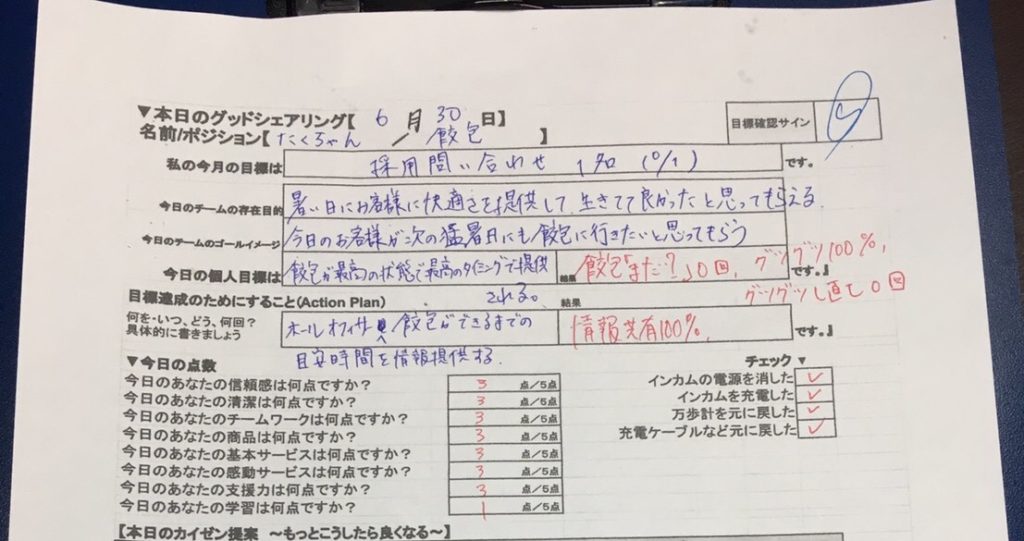 ▼本日のグッドシェアリング【 6 月 30 日】
名前/ポジション【 たくちゃん / 餃包 】
目標確認サイン
私の今月の目標は 採用問い合わせ 1名 (0/1) です。
今日のチームの存在目的 暑い日にお客様に快適さを提供して、生きてて良かったと思ってもらえる
今日のチームのゴールイメージ 今日のお客様が次の猛暑日にも餃包に行きたいと思ってもらう
今日の個人目標は 餃包が最高の状態で最高のタイミングで提供される。 結果 餃包「まだ?」0回、グツグツ100%、グツグツし直し0回 です。』
目標達成のためにすること(Action Plan) 結果
何を・いつ、どう、何回?
具体的に書きましょう
ホールオフィサー 餃包ができるまでの
目安時間を情報提供する。
情報共有100%. です。』
▼今日の点数
今日のあなたの信頼感は何点ですか? 3 点/5点
今日のあなたの清潔は何点ですか? 3 点/5点
今日のあなたのチームワークは何点ですか? 3 点/5点
今日のあなたの商品は何点ですか? 3 点/5点
今日のあなたの基本サービスは何点ですか? 3 点/5点
今日のあなたの感動サービスは何点ですか? 3 点/5点
今日のあなたの支援力は何点ですか? 3 点/5点
今日のあなたの学習は何点ですか? 1 点/5点
チェック ▼
インカムの電源を消した ✓
インカムを充電した ✓
万歩計を元に戻した ✓
充電ケーブルなど元に戻した ✓
【本日のカイゼン提案 ~もっとこうしたら良くなる~】